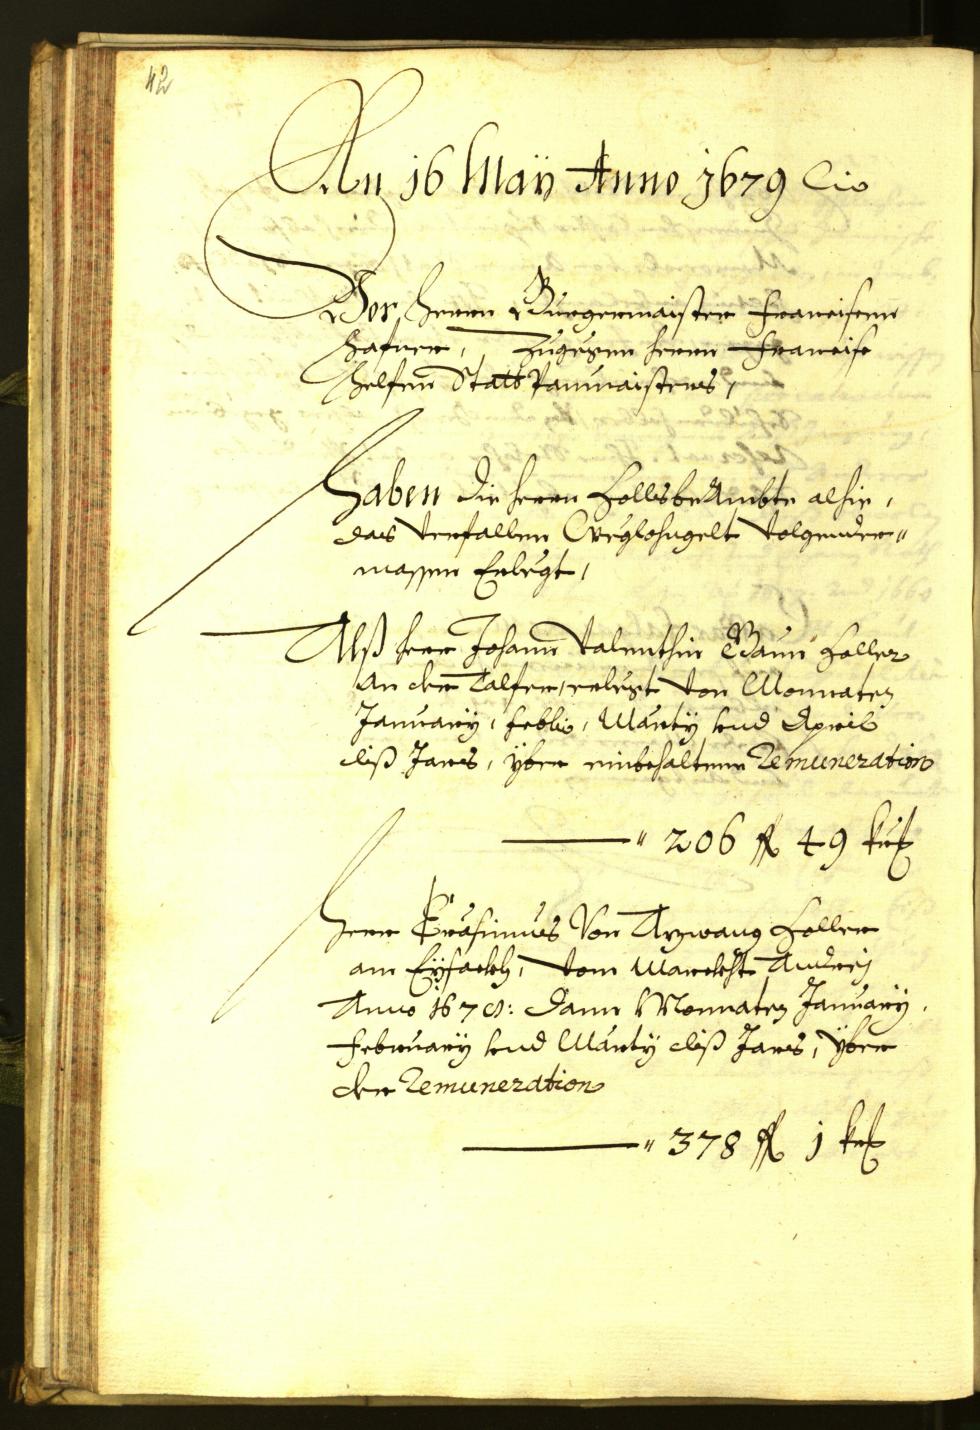 42
An 16 Maÿ Anno 1679
Vor Herrn Burgermaister Francisen
Hafner, Zugegen Herrn Francise
Helfen Statt Paumaisters,
Haben die Herrn Zollsbeambte alhie,
das verfallen Weglohngelt volgender¬
massen Erlegt,
Alß Herr Johann Valenthin Baur Zoller
an der Talfer, erlegt von Monnaten
January, Febbris, Marty und April
diß Jars, yber einbehaltene Remuneration
" 206 fl 49 kr
Herr Erasimus Von Arzwang Zoller
am Eysackh, vom Marckht Andreÿ
Anno 1678: dann Monnaten January,
February und Marty diß Jars, yber
der Remuneration
" 378 fl 1 kr